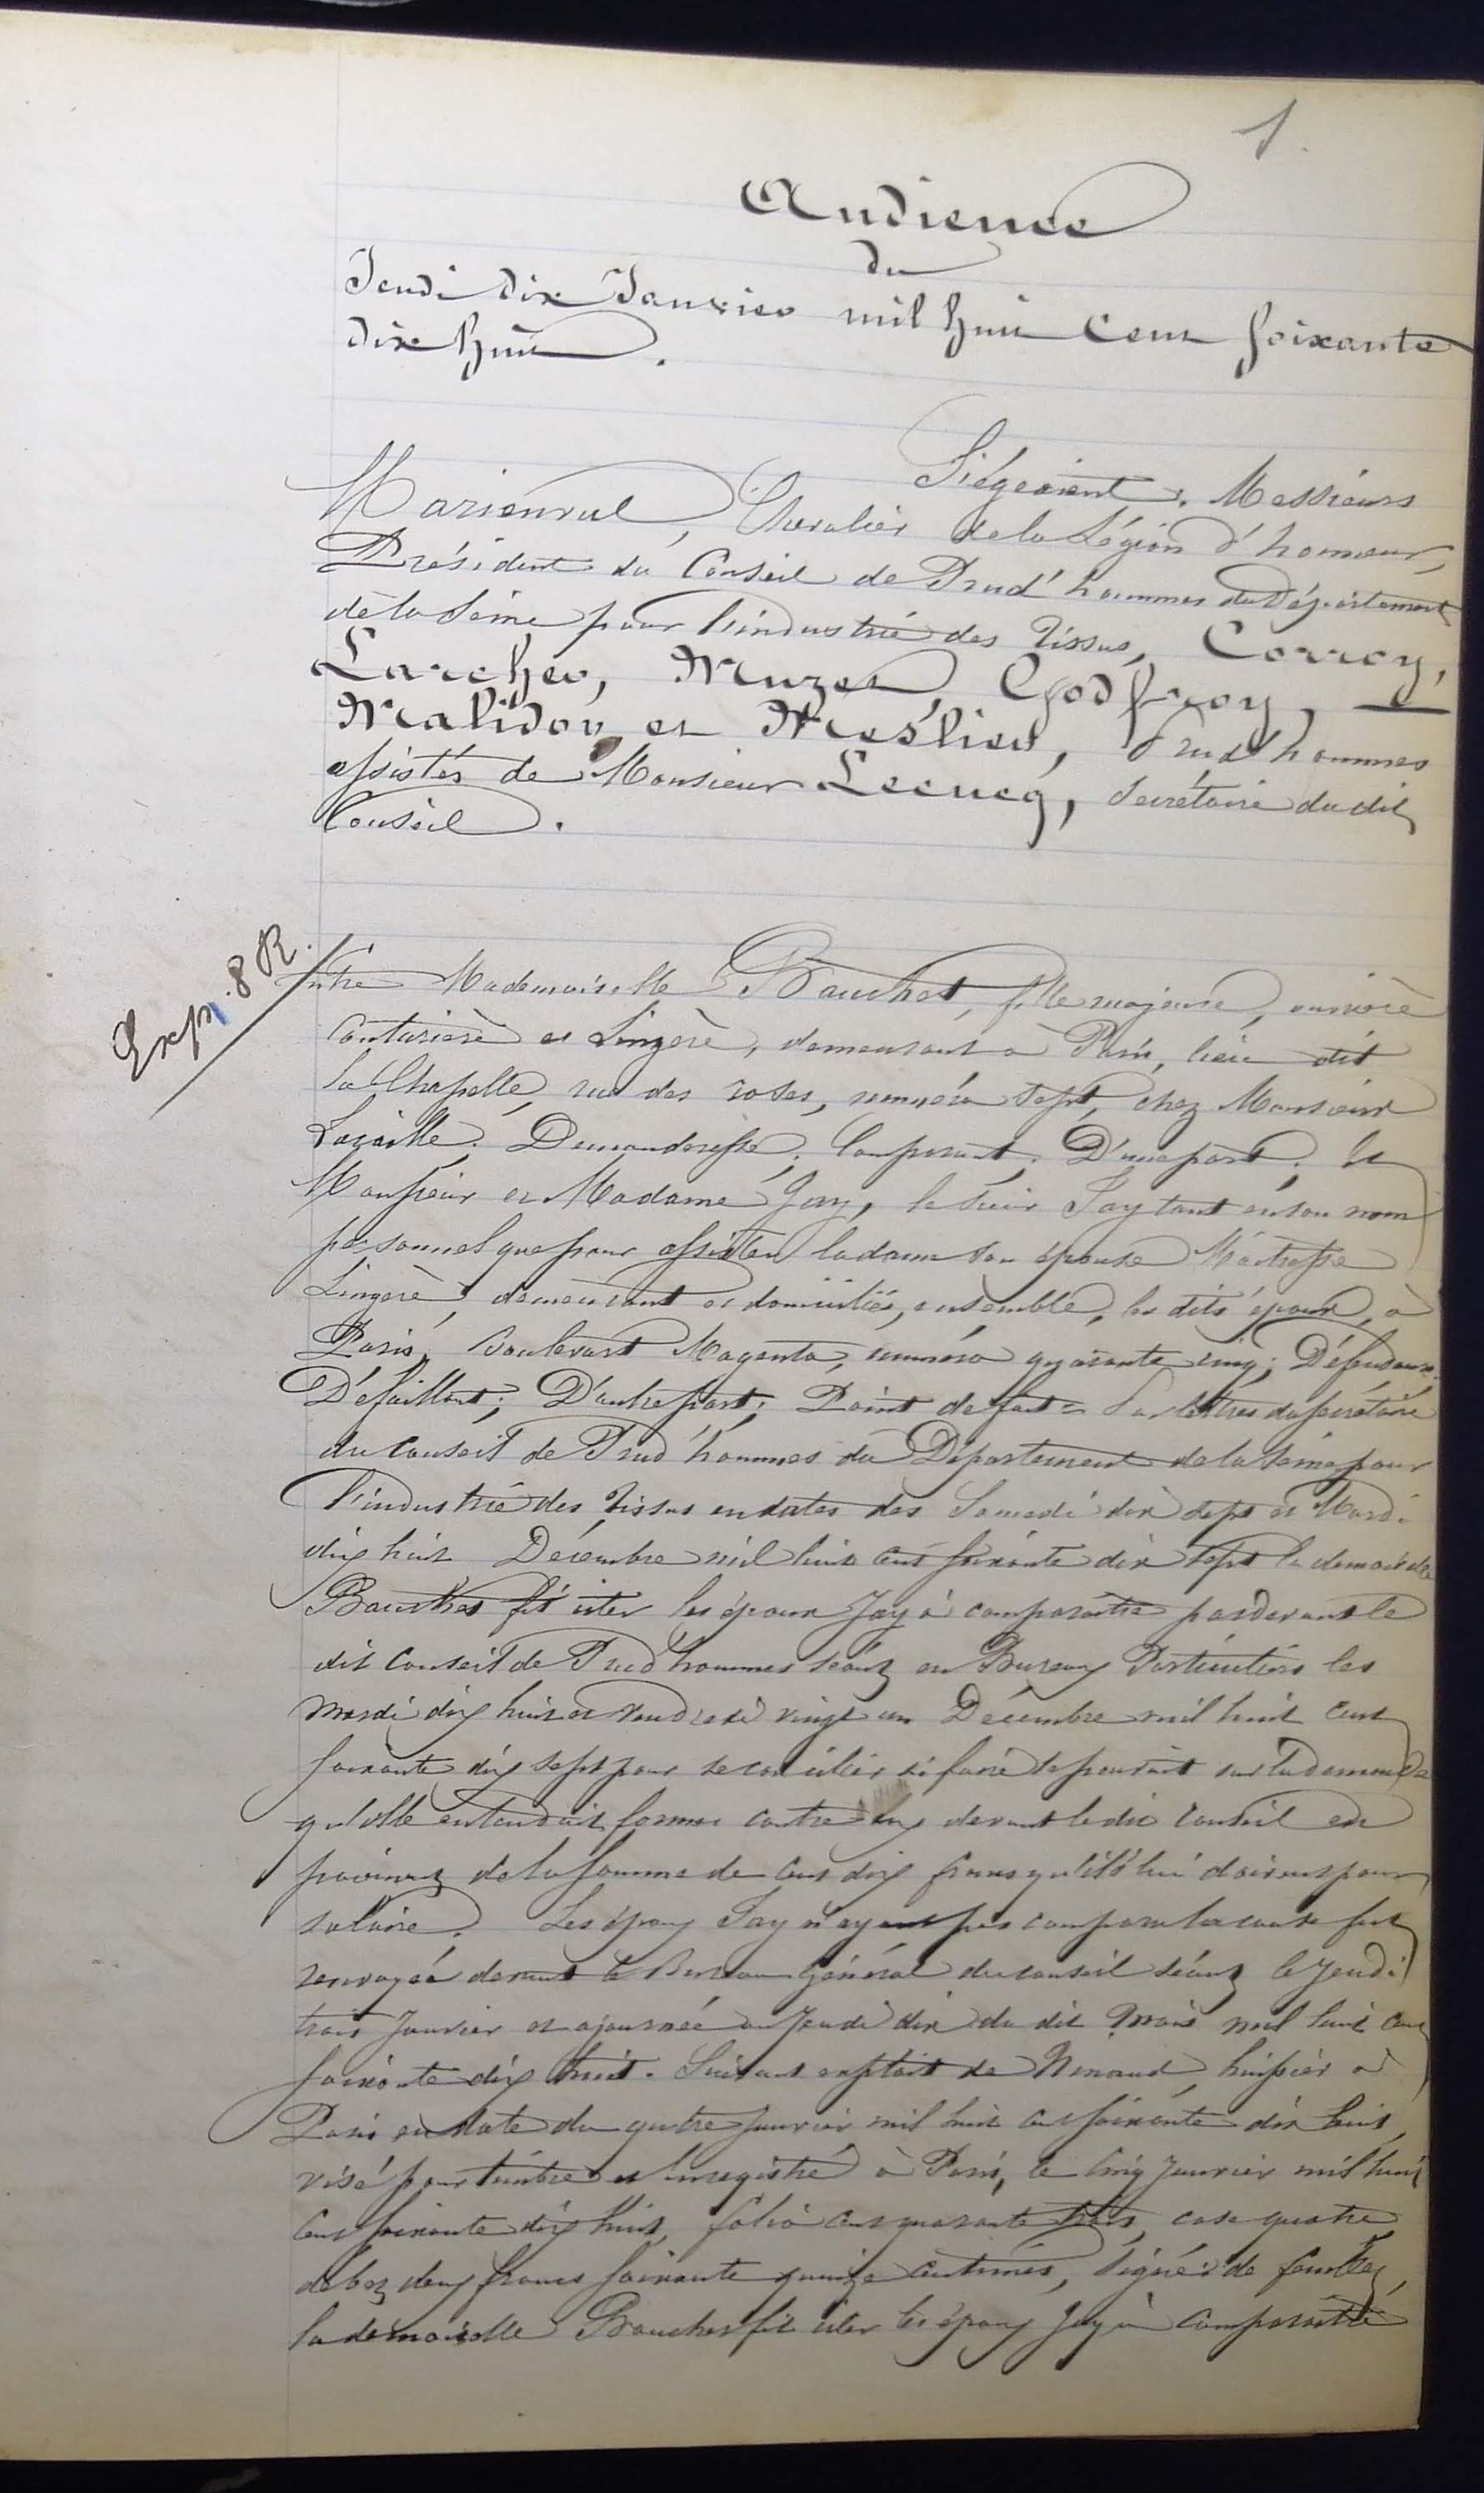 1.
Audience
du
Jeudi dix Janvier mil huit cent soixante
dix huit.
Siégeaient: Messieurs
Marienval, Chevalier de la Légion d'honneur,
Président du Conseil de Prud'hommes du Département
de la Seine pour l'industrie des Tissus, Corroy,
Larcher, Muzet, Godfroy,
Malidor et Meslier, Prud'hommes
assistés de Monsieur Lecucq, Secrétaire dudit
Conseil.
Exp. 8 R.
Entre Mademoiselle Bauchet, fille majeure, ouvrière
couturière et Lingère, demeurant à Paris, lieu dit
La Chapelle, rue des roses, numéro sept, chez Monsieur
Demanderesse; Comparant; D'une part; Et
Monsieur et Madame Jay, le sieur Jay tant en son nom
personnel que pour assister la dame son épouse Maitresse
Lingère, demeurant et domiciliés, ensemble, les dits époux, à
Paris, boulevart Magenta, numéro quarante cinq; Défendeurs;
Défaillant; D'autre part; Point de fait = Par lettres du secrétaire
du Conseil de Prud'hommes du Département de la Seine pour
l'industrie des Tissus en dates des Samedi dix sept et Mardi
dix huit Décembre mil huit cent soixante dix sept la demoiselle
Bauchet fit citer les époux Jay à comparaître pardevant le
dit Conseil de Prud'hommes séant en Bureau Particuliers les
mardi dix huit et vendredi vingt un Décembre mil huit cent
soixante dix sept pour se concilier si faire se pouvait sur la demande
qu'elle entendait former contre eux devant le dit Conseil en
paiement de la somme de cent dix francs qu'ils lui doivent pour
salaire. Les époux Jay n'ayant pas comparu la cause fut
renvoyée devant le Bureau Général du conseil séant le Jeudi
trois Janvier et ajournée au Jeudi dix du dit mois mil huit cent
soixante dix huit. Suivant exploit de huissier à
Paris en date du quatre Janvier mil huit cent soixante dix huit,
visé pour timbre et enregistré à Paris, le cinq Janvier mil huit
cent soixante dix huit, folio cent quarante trois, case quatre,
débet deux francs soixante quinze centimes, signé: de
la demoiselle Bauchet fit citer les époux Jay à comparaître